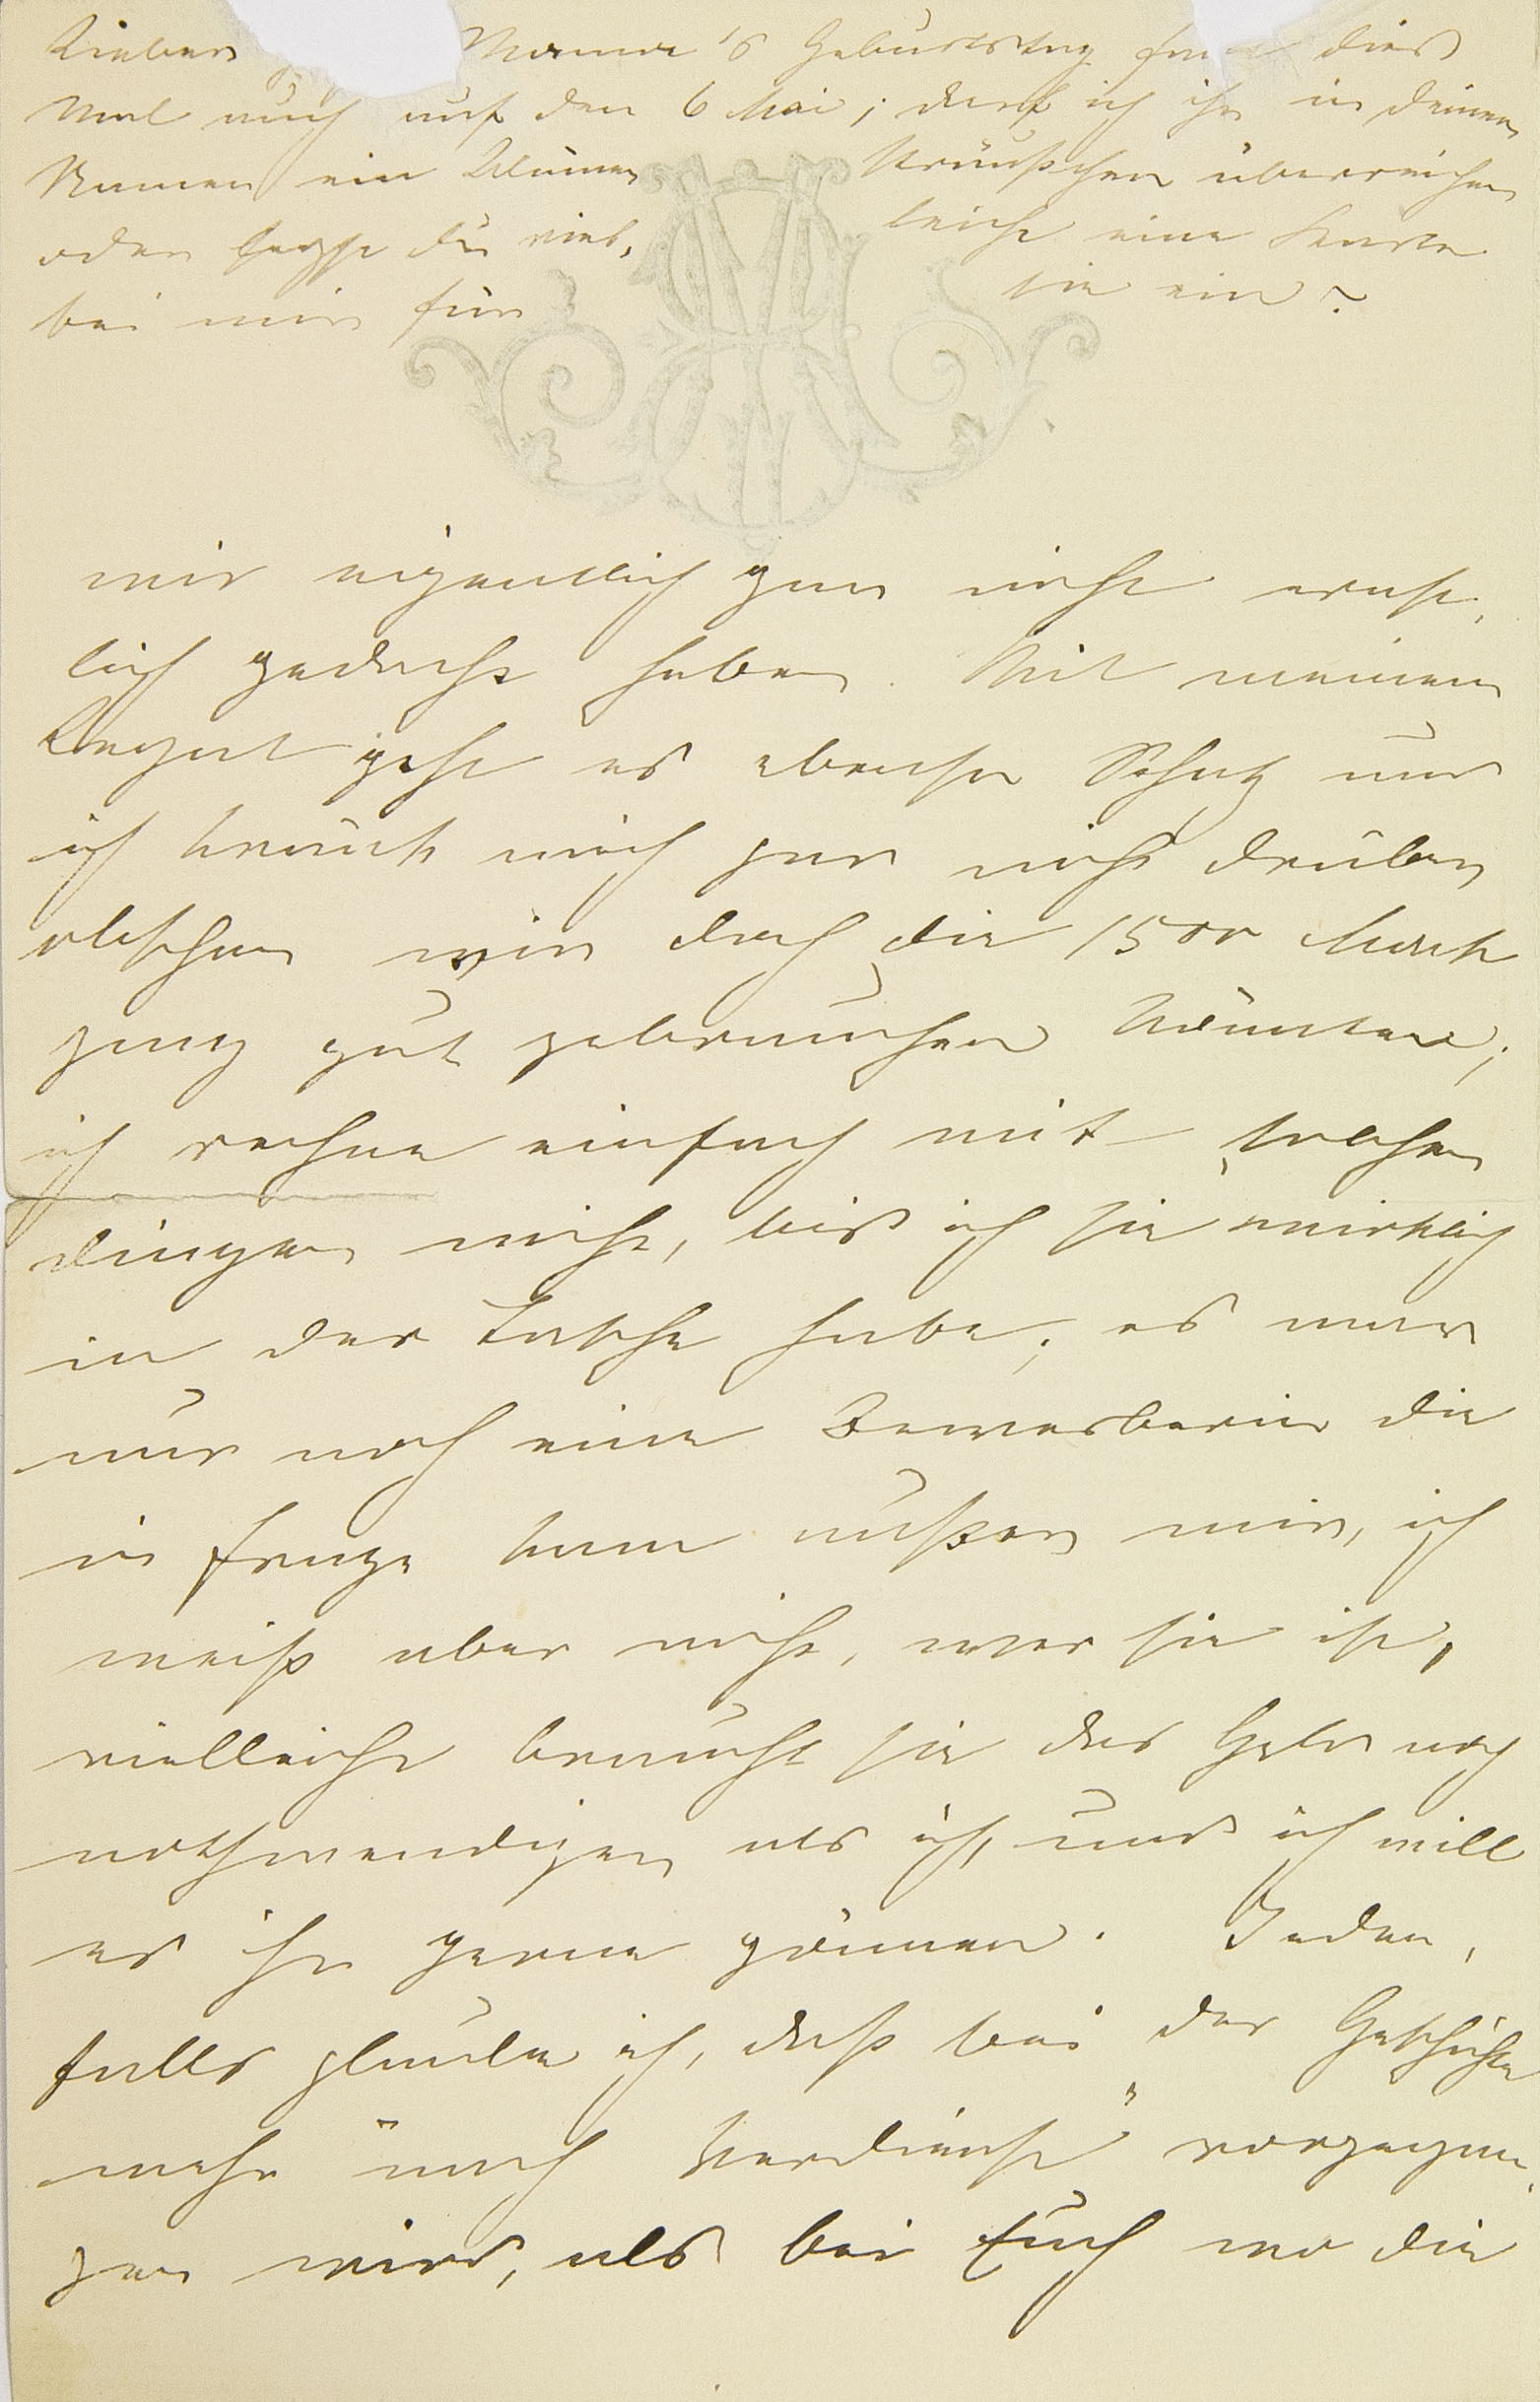 Lieber Mama's Geburtstag dies
Mal auch auf den 6 Mai; darf ich ihr in deinem
Namen ein Blumen Sträußchen überreichen
oder legst du viel, leicht eine Karte
bei mir für sie ein?
mir eigentlich gar nicht ernst,
lich gedacht haben. Mit meinem
Legat geht es ebenso Schatz und
ich kränk mich gar nicht drüber
obschon wir doch die 1500 Mark
ganz gut gebrauchen könnten;
ich rechne einfach mit solchen
dingen nicht, bis ich sie wirklich
in der Tasche habe; es war
nur noch eine Bewerberin die
in frage kam außer mir, ich
weiß aber nicht, wer sie ist,
vielleicht braucht sie das Geld noch
nothwendiger als ich, und ich will
es ihr gerne gönnen. Jeden,
falls glaube ich, daß bei der Geschichte
mehr "nach Verdienst" vorgegan,
gen wird, als bei Euch wo die